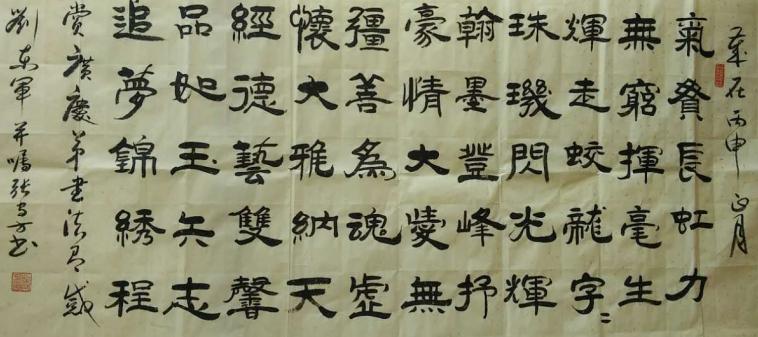 歲在丙申正月
氣貫長虹力
無窮揮毫生
輝走蛟龍字〻
珠璣閃光輝
翰墨登峰抒
豪情大愛無
疆善為魂虛
懷大雅納天
經德藝雙馨
品如玉兵志
追夢錦綉程
賞廣慶弟書法有感
劉東軍 并囑張書